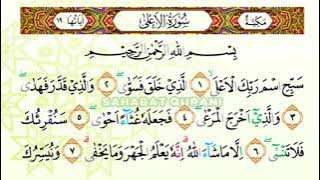 مكية سورة الأعلى آياتها ١٩
بِسْمِ اللّٰهِ الرَّحْمٰنِ الرَّحِيْمِ
سَبِّحِ اسْمَ رَبِّكَ الْاَعْلَى ١ الَّذِيْ خَلَقَ فَسَوّٰى ٢ وَالَّذِيْ قَدَّرَ فَهَدٰى
٣ وَالَّذِيْٓ اَخْرَجَ الْمَرْعٰى ٤ فَجَعَلَهٗ غُثَاۤءً اَحْوٰى ٥ سَنُقْرِئُكَ
فَلَا تَنْسٰٓى ٦ اِلَّا مَا شَاۤءَ اللّٰهُ اِنَّهٗ يَعْلَمُ الْجَهْرَ وَمَا يَخْفٰى ٧ وَنُيَسِّرُكَ
SAHABAT QURANI